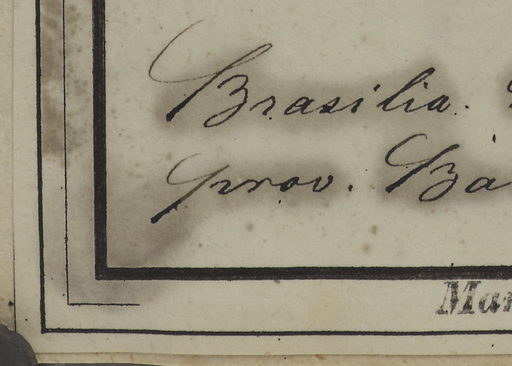 Brasilia.
prov. Ba
Mar